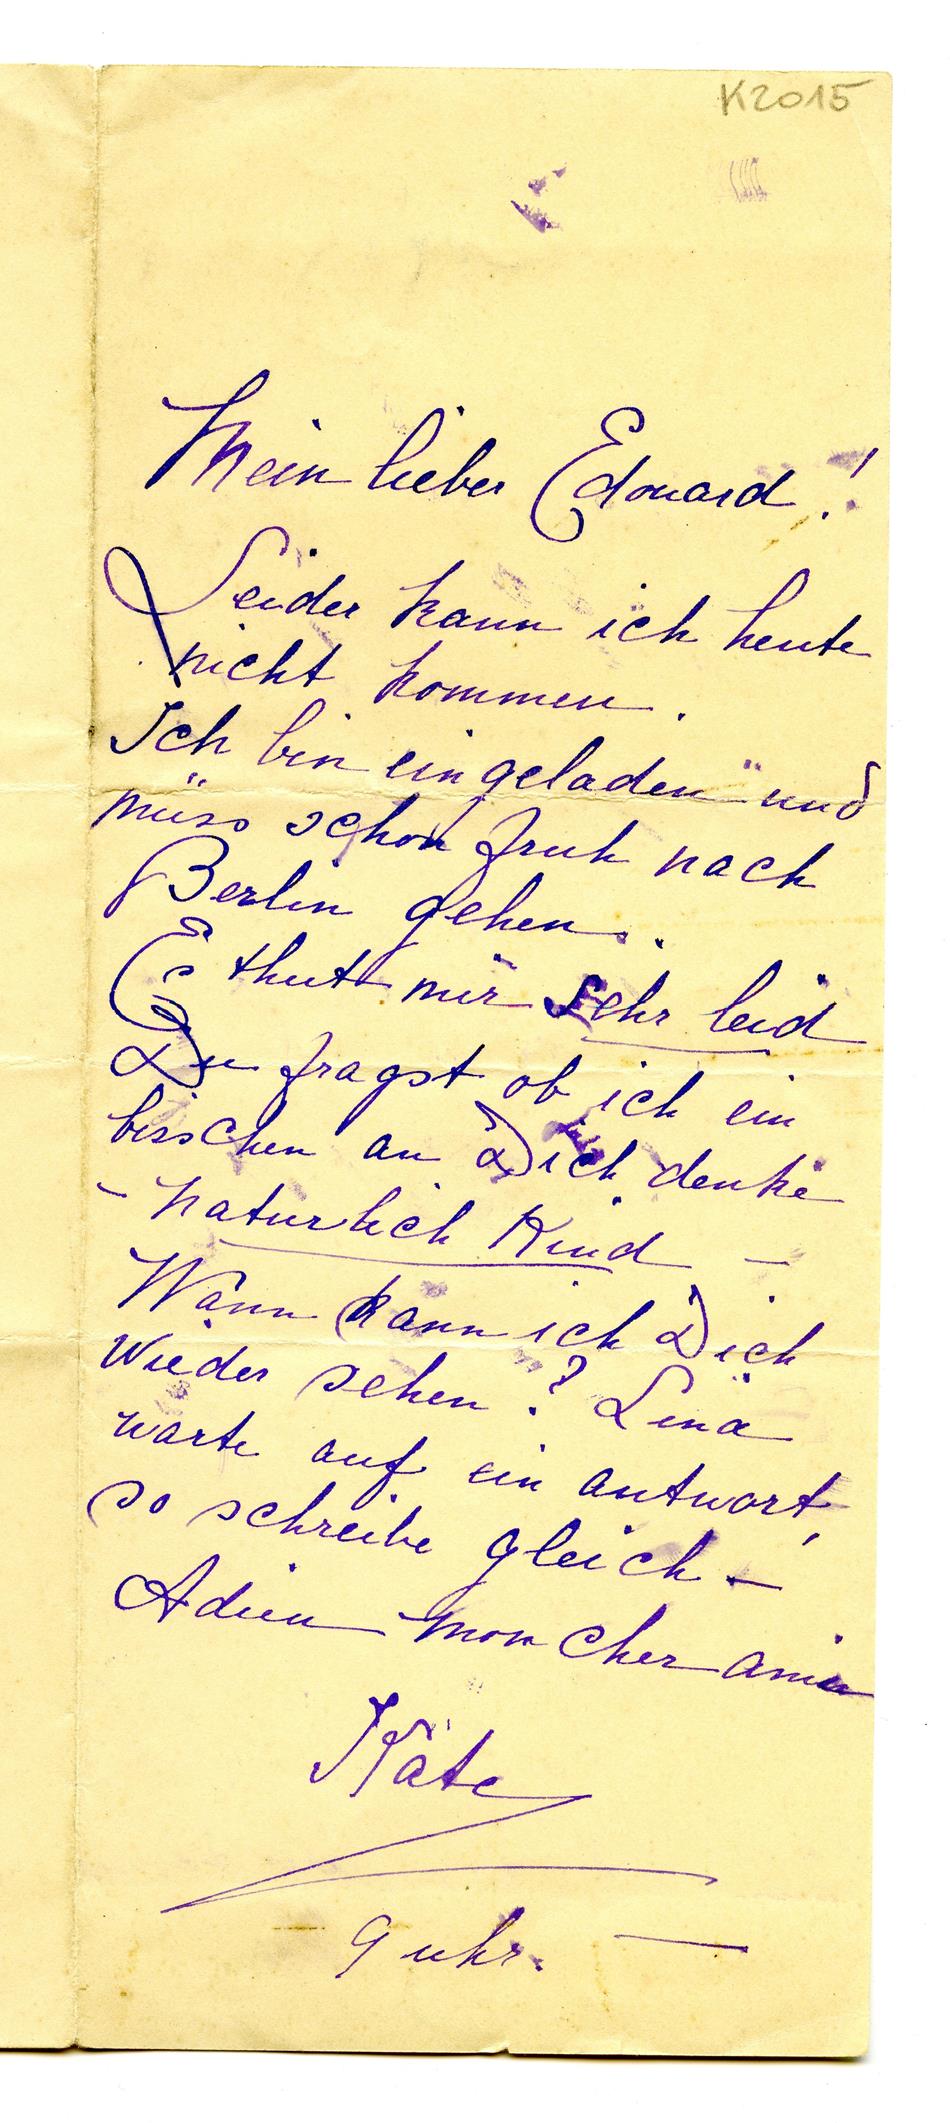 K2015
Mein lieber Edouard!
Leider kann ich heute
nicht kommen.
Ich bin eingeladen und
müss schon fruh nach
Berlin gehen..
Es thut mir sehr leid
Du fragst ob ich ein
bisschen an Dich denke
- naturlich Kind -
Wann kann ich Dich
wieder sehen? Lina
warte auf ein antwort,
so schreibe gleich -
Adieu mon cher ami
Käte
9 uhr. -